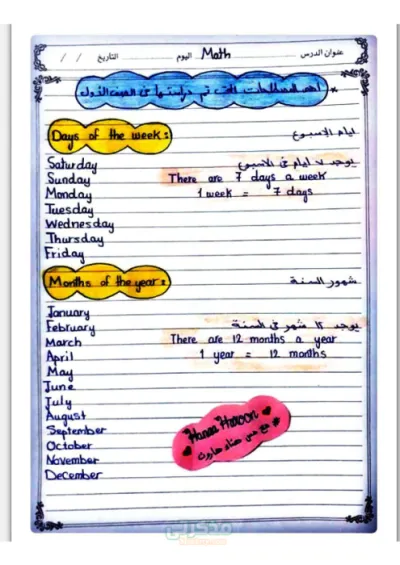 عنوان الدرس Math اليوم التاريخ / /
* أهم المصطلحات التى تم دراستها فى الصف الأول
Days of the week: ايام الاسبوع
Saturday يوجد ٧ ايام فى الاسبوع
Sunday There are 7 days a week
Monday 1 week = 7 days
Tuesday
Wednesday
Thursday
Friday
Months of the year: شهور السنة
January
February يوجد ١٢ شهر فى السنة
March There are 12 months a year
April 1 year = 12 months
May
June
July
August
September
October
November
December
Hanaa Haroon
مع مس هناء هارون
مذكرتى